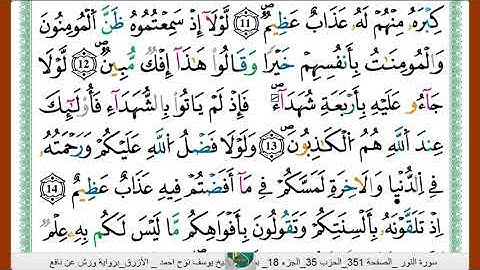 كِبْرَهُۥ مِنْهُمْ لَهُۥ عَذَابٌ عَظِيمٌۖ ۝11 لَّوْلَآ إِذْ سَمِعْتُمُوهُ ظَنَّ اَ۬لْمُومِنُونَ
وَالْمُومِنَٰتُ بِأَنفُسِهِمْ خَيْراٗ وَقَالُواْ هَٰذَآ إِفْكٞ مُّبِينٞۖ ۝12 لَّوْلَا
جَآءُو عَلَيْهِ بِأَرْبَعَةِ شُهَدَآءَۖ فَإِذْ لَمْ يَاتُواْ بِالشُّهَدَآءِ فَأُوْلَٰٓئِكَ
عِندَ اَ۬للَّهِ هُمُ اُ۬لْكَٰذِبُونَۖ ۝13 وَلَوْلَا فَضْلُ اُ۬للَّهِ عَلَيْكُمْ وَرَحْمَتُهُۥ
فِے اِ۬لدُّنْيَا وَالَاخِرَةِ لَمَسَّكُمْ فِے مَآ أَفَضْتُمْ فِيهِ عَذَابٌ عَظِيمٌ ۝14
اِذْ تَلَقَّوْنَهُۥ بِأَلْسِنَتِكُمْ وَتَقُولُونَ بِأَفْوَاهِكُم مَّا لَيْسَ لَكُم بِهِۦ عِلْمٞ
سورة النور _ الصفحة 351_الحزب 35_الجزء 18_ الشيخ يوسف نوح احمد _ الأزرق_برواية ورش عن نافع